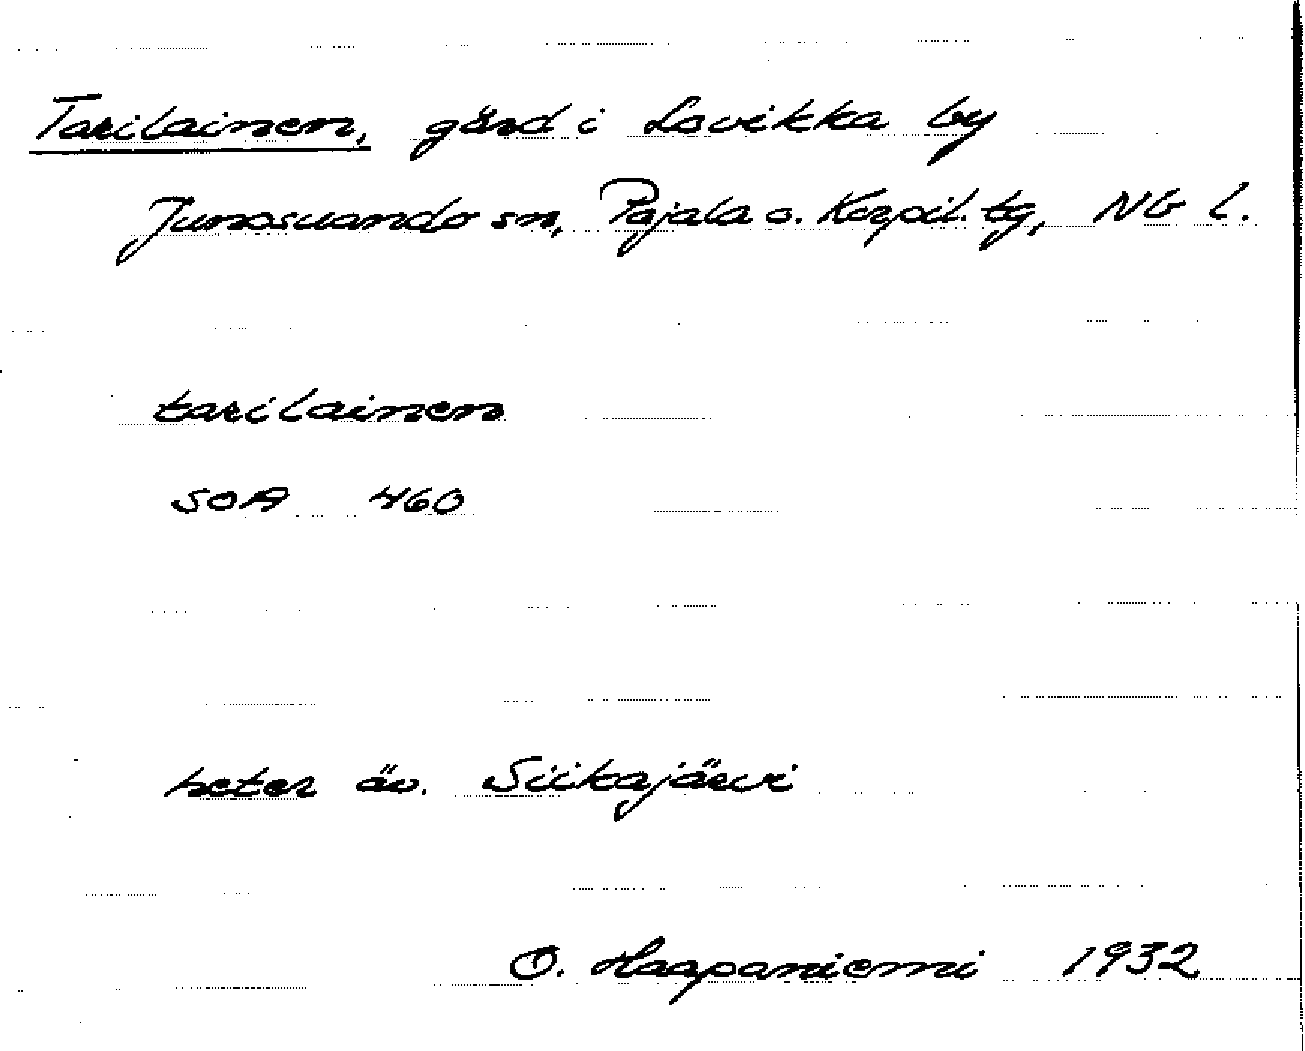 Tarilainen, gård i Lovikka by
Junosuando sn, Pajala o. Korpil. tg, NB l.
tarilainen
SOA 460
heter äv. Siikajärvi
O. Haapaniemi 1932